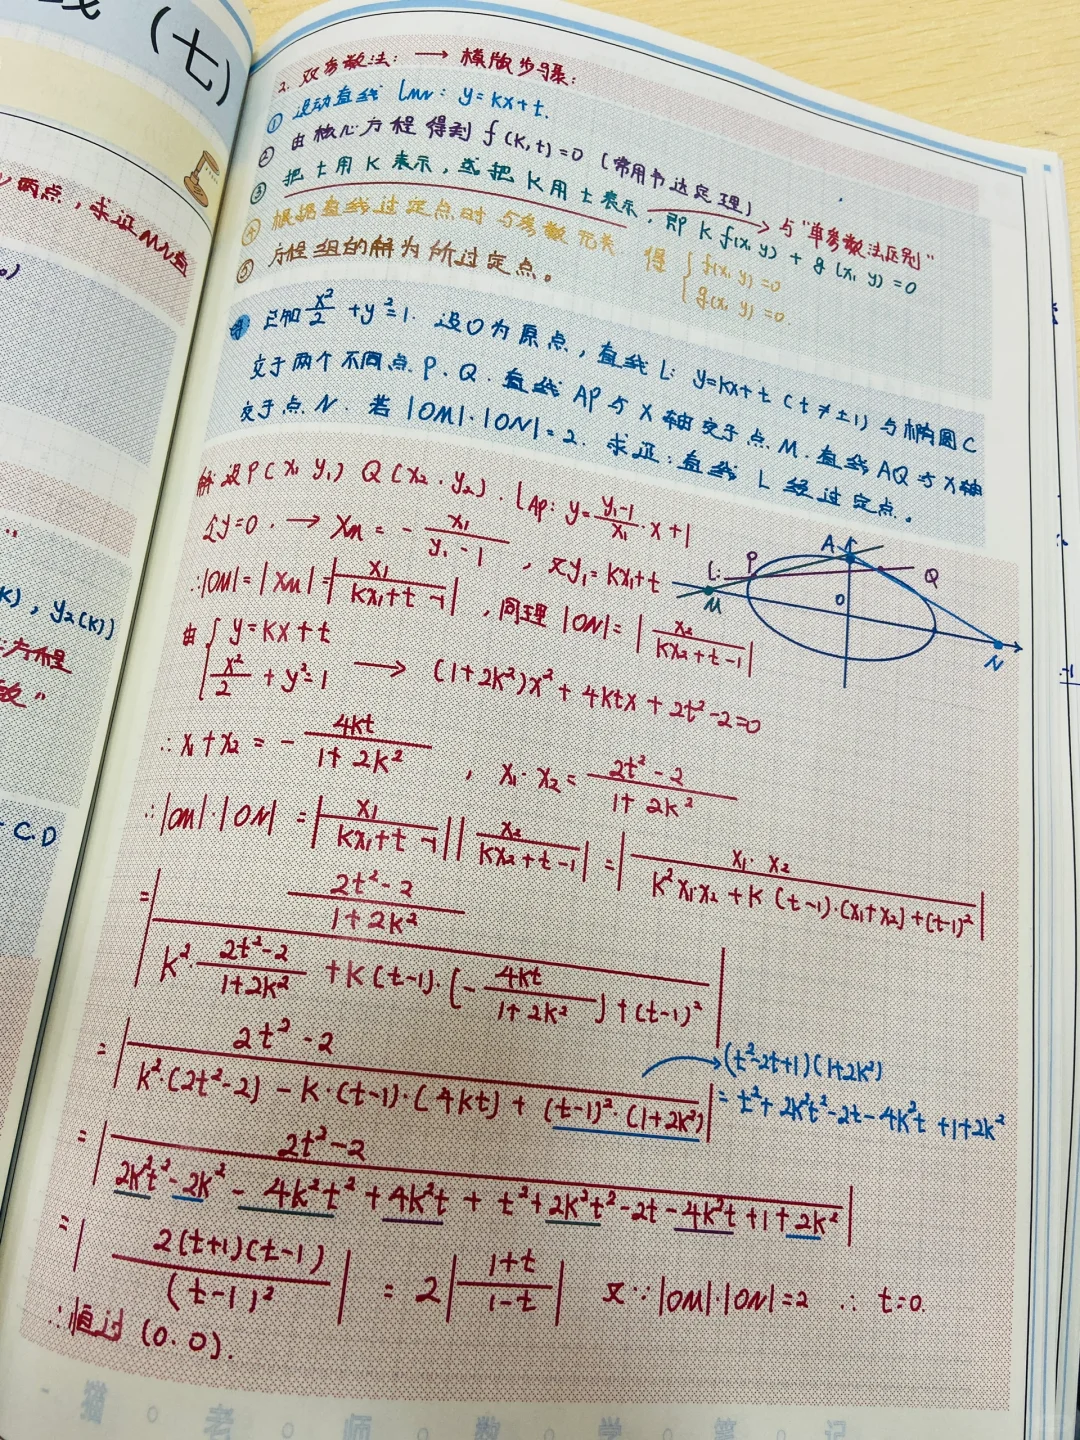 线（七）
2. 双参数法: → 模版步骤:
① 设动直线 lMN: y=kx+t.
② 由核心方程得到 f(k,t)=0 (常用韦达定理)
③ 把 t 用 k 表示, 或把 k 用 t 表示, 即 k f(x,y) + g(x,y)=0
→ 与"单参数法区别"
④ 根据直线过定点时与参数无关, 得 { f(x,y)=0
g(x,y)=0.
⑤ 方程组的解为所过定点。
例 已知 x²/2 + y²=1. 设O为原点, 直线 L: y=kx+t (t≠±1) 与椭圆C
交于两个不同点 P、Q. 直线 AP 与 X 轴交于点 M. 直线 AQ 与 X 轴
交于点 N. 若 |OM|·|ON|=2. 求证: 直线 L 经过定点。
解: 设 P(x₁ y₁) Q(x₂·y₂). lAP: y=(y₁-1)/x₁ · x+1
令 y=0. → xM = - x₁/(y₁-1), 又 y₁=kx₁+t
∴|OM|=|xM|=|x₁/(kx₁+t-1)|, 同理 |ON|=|x₂/(kx₂+t-1)|
A
L:
P
Q
M
O
N
由 { y=kx+t
x²/2 + y²=1 → (1+2k²)x² + 4ktx + 2t²-2=0
∴ x₁+x₂ = - 4kt/(1+2k²), x₁·x₂ = (2t²-2)/(1+2k²)
∴|OM|·|ON| = |x₁/(kx₁+t-1)||x₂/(kx₂+t-1)| = |x₁·x₂/(k²x₁·x₂+k(t-1)·(x₁+x₂)+(t-1)²|
= |(2t²-2)/(1+2k²) / (k²·(2t²-2)/(1+2k²) + k(t-1)·(-4kt/(1+2k²))+(t-1)²)|
= |(2t²-2)/(k²·(2t²-2) - k·(t-1)·(4kt) + (t-1)²·(1+2k²))|
(t²-2t+1)(1+2k²)
= t²+2k²t²-2t-4k²t+1+2k²
= |(2t²-2)/(2k²t²-2k²-4k²t²+4k²t+t²+2k²t²-2t-4k²t+1+2k²)|
= |2(t+1)(t-1)/(t-1)²| = 2|(1+t)/(1-t)| 又∵|OM|·|ON|=2 ∴ t=0.
∴恒过 (0.0).
两点, 求证MN直
y₂(k))
方程
C.D
猫。老。师。数。学。笔。记